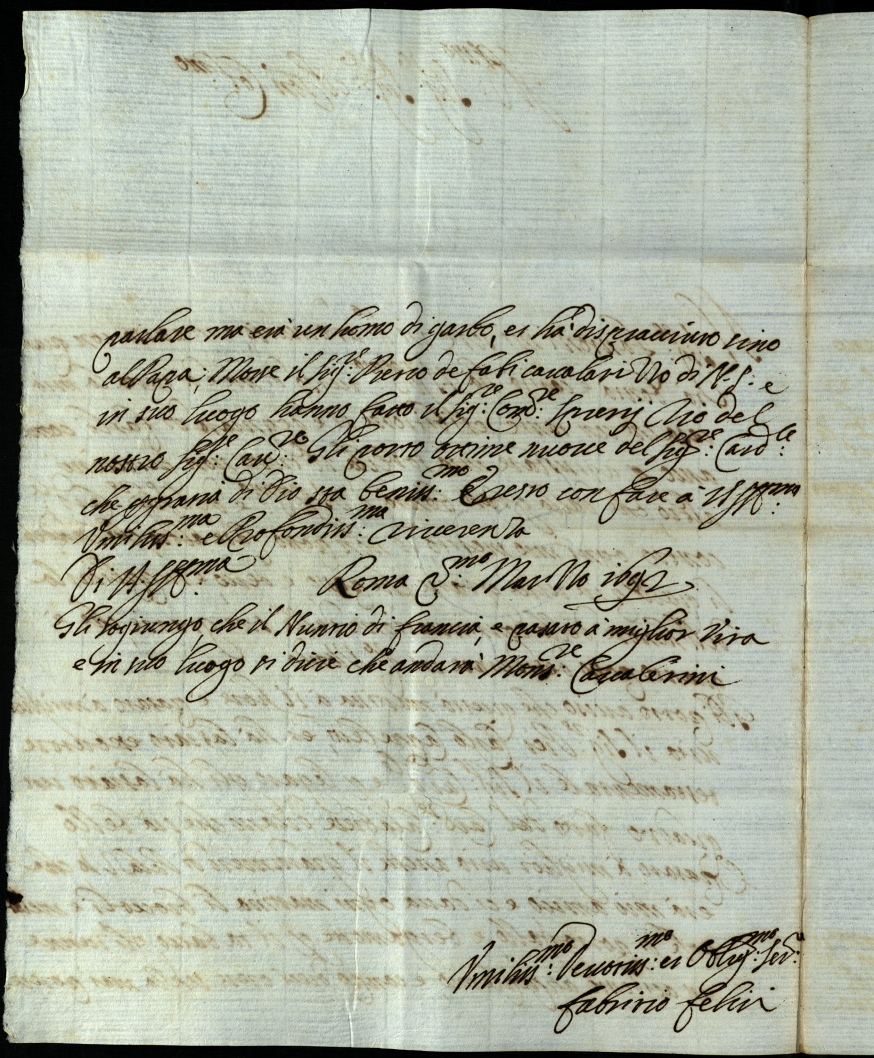 parlare ma era un homo di garbo, et ha dispiacciuto sino
al Papa; More il Sig.re Pietro de fabi cavalari Uo di N. S. e
in suo luogo hanno fatto il Sig.re Con.re Uo del
nostro Sig.re Cav.re Gli porto ottime nuove del Sig.re Card.le
che per grazia di Dio sta beniss.mo e resto con fare à V. S. Ill.ma
Umiliss.ma e Profondiss.ma riverenza
Di V. S. Ill.ma Roma P.mo Marzo 1692
Gli sogiungo, che il Nuntio di francia, e passato à miglior Vita
e in suo luogo si dice che andarà Mons.re Cavalerini
Umiliss.mo Devotiss.mo et Oblig.mo Ser.re
fabritio felici